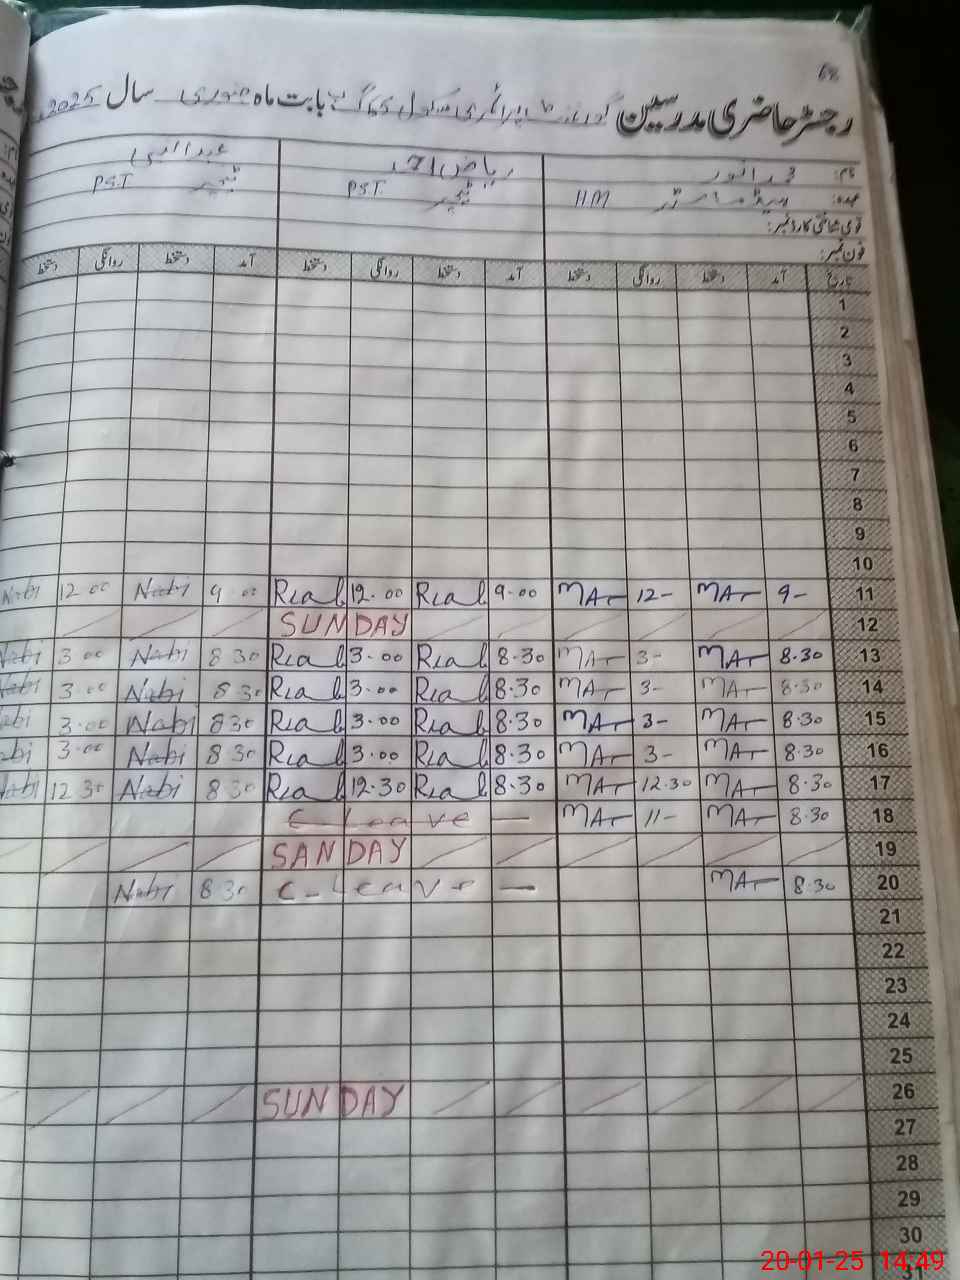 رجسٹر حاضری مدرسین گورنمنٹ پرائمری سکول بابت ماہ جنوری سال 2025
نام: محمد انور ریاض احمد عبدالنبی
عہدہ: ہیڈ ماسٹر HM ٹیچر PST ٹیچر PST
قومی شناختی کارڈ نمبر:
فون نمبر:
تاریخ آمد دستخط روانگی دستخط آمد دستخط روانگی دستخط آمد دستخط روانگی دستخط
1
2
3
4
5
6
7
8
9
10
11 9- MAr 12- MAr 9.00 Riad 12.00 Riad 9 00 Nabi 12 00 Nabi
12 SUNDAY
13 8.30 MAr 3- MAr 8.30 Riad 3.00 Riad 8 30 Nabi 3 00 Nabi
14 8.30 MAr 3- MAr 8.30 Riad 3.00 Riad 8 30 Nabi 3.00 Nabi
15 8.30 MAr 3- MAr 8.30 Riad 3.00 Riad 8 30 Nabi 3.00 abi
16 8.30 MAr 3- MAr 8.30 Riad 3.00 Riad 8 30 Nabi 3.00 abi
17 8.30 MAr 12.30 MAr 8.30 Riad 12.30 Riad 8 30 Nabi 12 30 Nabi
18 8.30 MAr 11- MAr C-Leave —
19 SANDAY
20 8.30 MAr C-Leave — 8 30 Nabi
21
22
23
24
25
26 SUNDAY
27
28
29
30
31
20-01-25 14:49